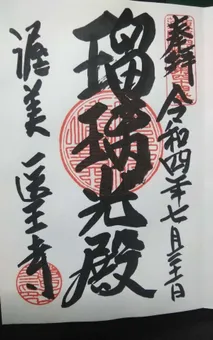 奉拝 令和四年七月三十一日
瑠璃光殿
渥美 医王寺